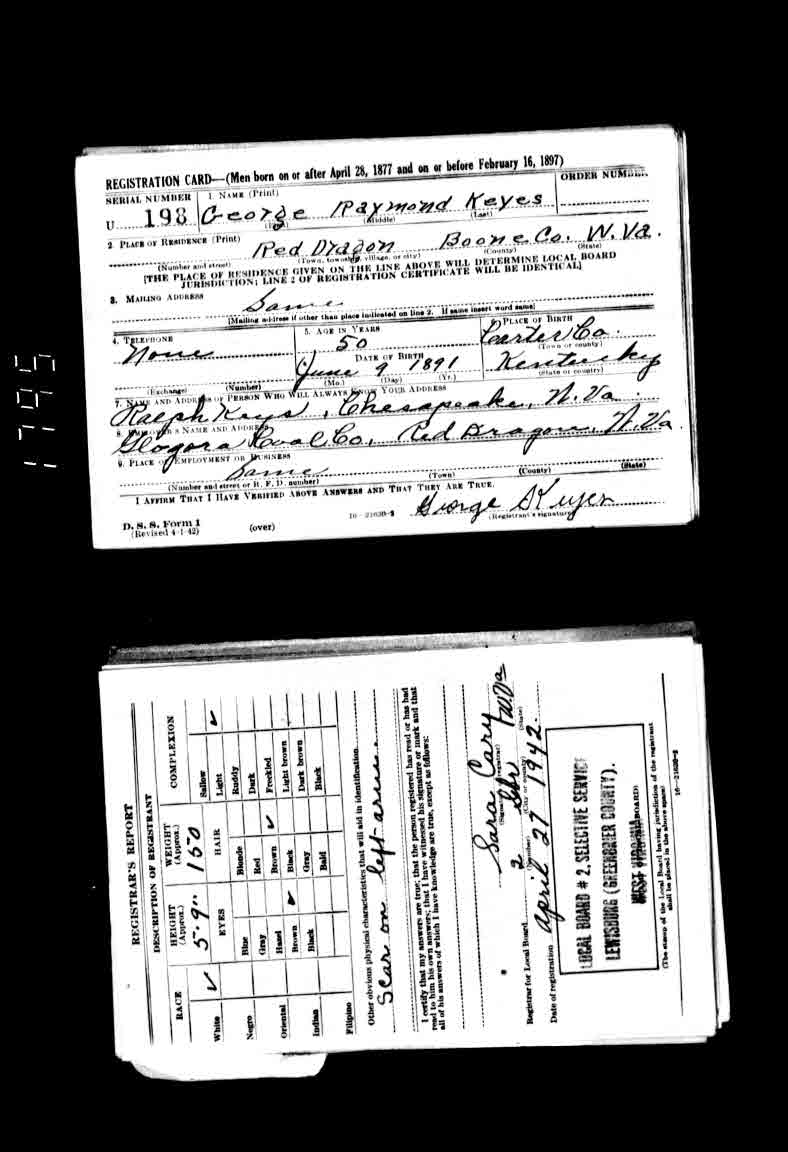 REGISTRATION CARD—(Men born on or after April 28, 1877 and on or before February 16, 1897)
SERIAL NUMBER 1. NAME (Print) ORDER NUMBER
U 198 George Raymond Keyes
(First) (Middle) (Last)
2. PLACE OF RESIDENCE (Print)
Red Dragon Boone Co. W. Va.
(Number and street) (Town, township, village, or city) (County) (State)
[THE PLACE OF RESIDENCE GIVEN ON THE LINE ABOVE WILL DETERMINE LOCAL BOARD
JURISDICTION; LINE 2 OF REGISTRATION CERTIFICATE WILL BE IDENTICAL]
3. MAILING ADDRESS
Same
[Mailing address if other than place indicated on line 2. If same insert word same]
4. TELEPHONE 5. AGE IN YEARS PLACE OF BIRTH
None 50 Carter Co.
(Town or county)
DATE OF BIRTH
June 9 1891 Kentucky
(Exchange) (Number) (Mo.) (Day) (Yr.) (State or country)
7. NAME AND ADDRESS OF PERSON WHO WILL ALWAYS KNOW YOUR ADDRESS
Ralph Keys, Chesapeake, W. Va.
8. EMPLOYER'S NAME AND ADDRESS
Glogora Coal Co. Red Dragon, W. Va.
9. PLACE OF EMPLOYMENT OR BUSINESS
Same
(Number and street or R. F. D. number) (Town) (County) (State)
I AFFIRM THAT I HAVE VERIFIED ABOVE ANSWERS AND THAT THEY ARE TRUE.
George
D. S. S. Form 1
(Revised 4-1-42) (over) 16—21630-2 (Registrant's signature)
1795
REGISTRAR'S REPORT
DESCRIPTION OF REGISTRANT
RACE HEIGHT (Approx.) WEIGHT (Approx.) COMPLEXION
5'-9" 150
EYES HAIR
White ✓ Sallow
Light ✓
Negro Blue Blonde Ruddy
Gray Red Dark
Oriental Hazel Brown ✓ Freckled
Brown ✓ Black Light brown
Indian Black Gray Dark brown
Bald Black
Filipino
Other obvious physical characteristics that will aid in identification
Scar on left arm.
I certify that my answers are true; that the person registered has read or has had
read to him his own answers; that I have witnessed his signature or mark and that
all of his answers of which I have knowledge are true, except as follows:
Sara Cary
(Signature of registrar)
Registrar for Local Board 2 W. Va
(Number) (City or county) (State)
Date of registration April 27 1942.
LOCAL BOARD # 2. SELECTIVE SERVICE
LEWISBURG (GREENBRIER COUNTY).
WEST VIRGINIA
(The stamp of the Local Board having jurisdiction of the registrant
shall be placed in the above space)
16—21630-2